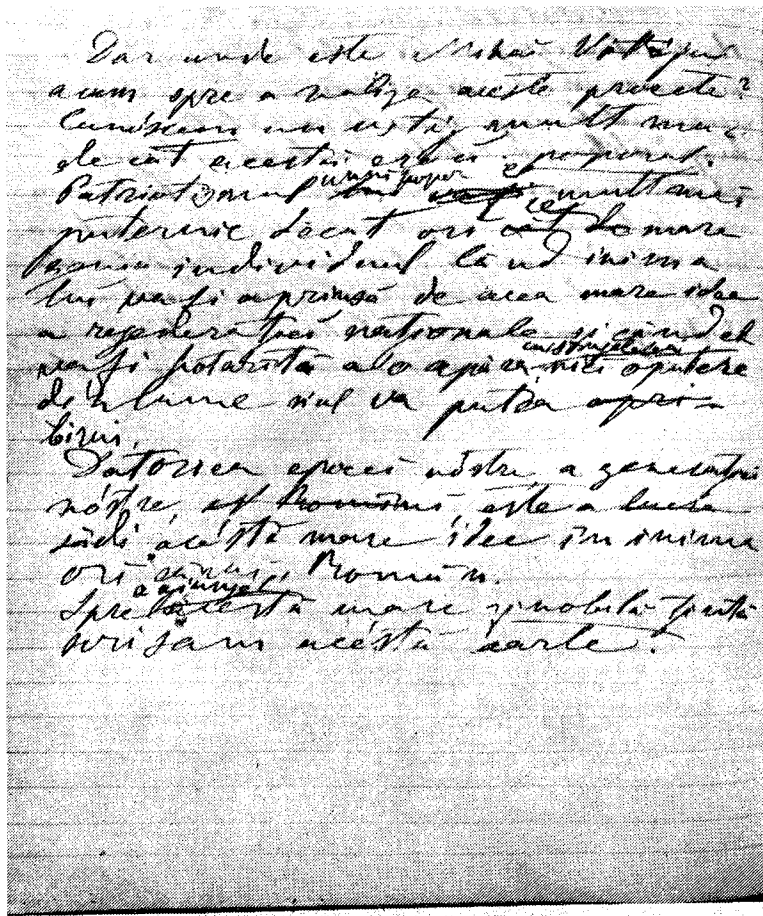 Dar unde este Mihai Vitézul
acum spre a realiza aceste proecte?
Cunóscem un mult mai
de cât acesta poporul.
Patriotismul unui popor e mult mai
puternic decat ori cel de mare
individul când inima
lui va fi aprinsă de acea mare idee
a regeneraţiei naţionale şi când el
va fi hotarită a o apăra nici o putere
din lume nul va putea opri
birui.
Datoriea epocei nóstre, a generaţiei
nóstre, este a lucra
sădi acéstă mare idee în inima
ori cărui Român.
Spre a ajunge acestă mare şi nobilă ţintă
scrisam acéstă carte.